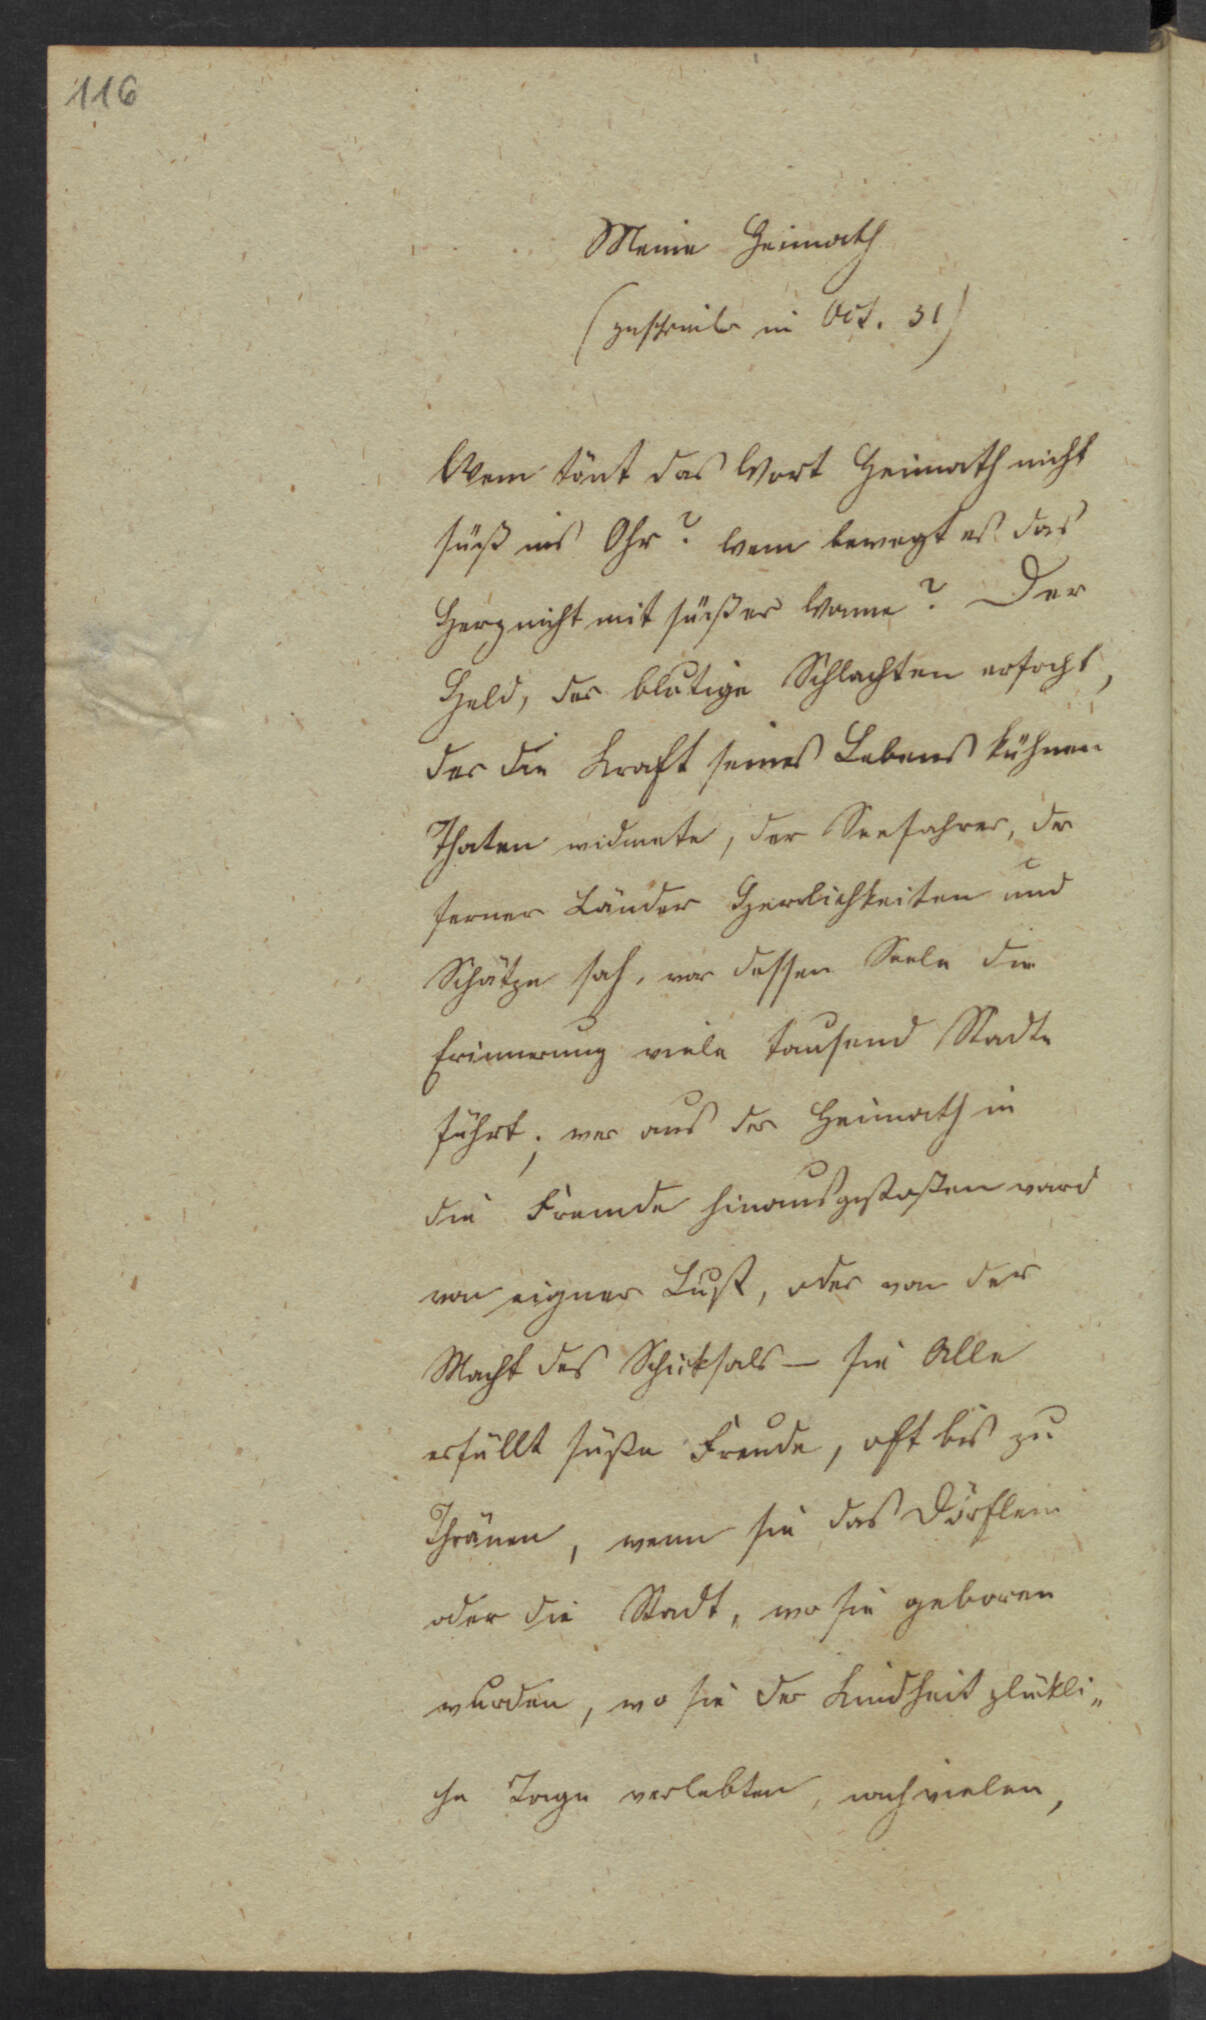 116
Meine Heimath
(geschrieb. im Oct. 31)
Wem tönt das Wort Heimath nicht
süß ins Ohr? wem bewegt es das
Herz nicht mit süßer Wonne? Der
Held, der blutige Schlachten erfocht,
der die Kraft seines Lebens kühnen
Thaten widmete, der Seefahrer, der
ferner Länder Herrlichkeiten und
Schätze sah, vor dessen Seele die
Erinnerung viele tausend Städte
führt; wer aus der Heimath in
die Fremde hinausgestoßen ward
von eigner Lust, oder von der
Macht des Schicksals – sie Alle
erfüllt süße Freude, oft bis zu
Thränen, wenn sie das Dörflein
oder die Stadt, wo sie geboren
wurden, wo sie der Kindheit glückli„
che Tage verlebten, nach vielen,